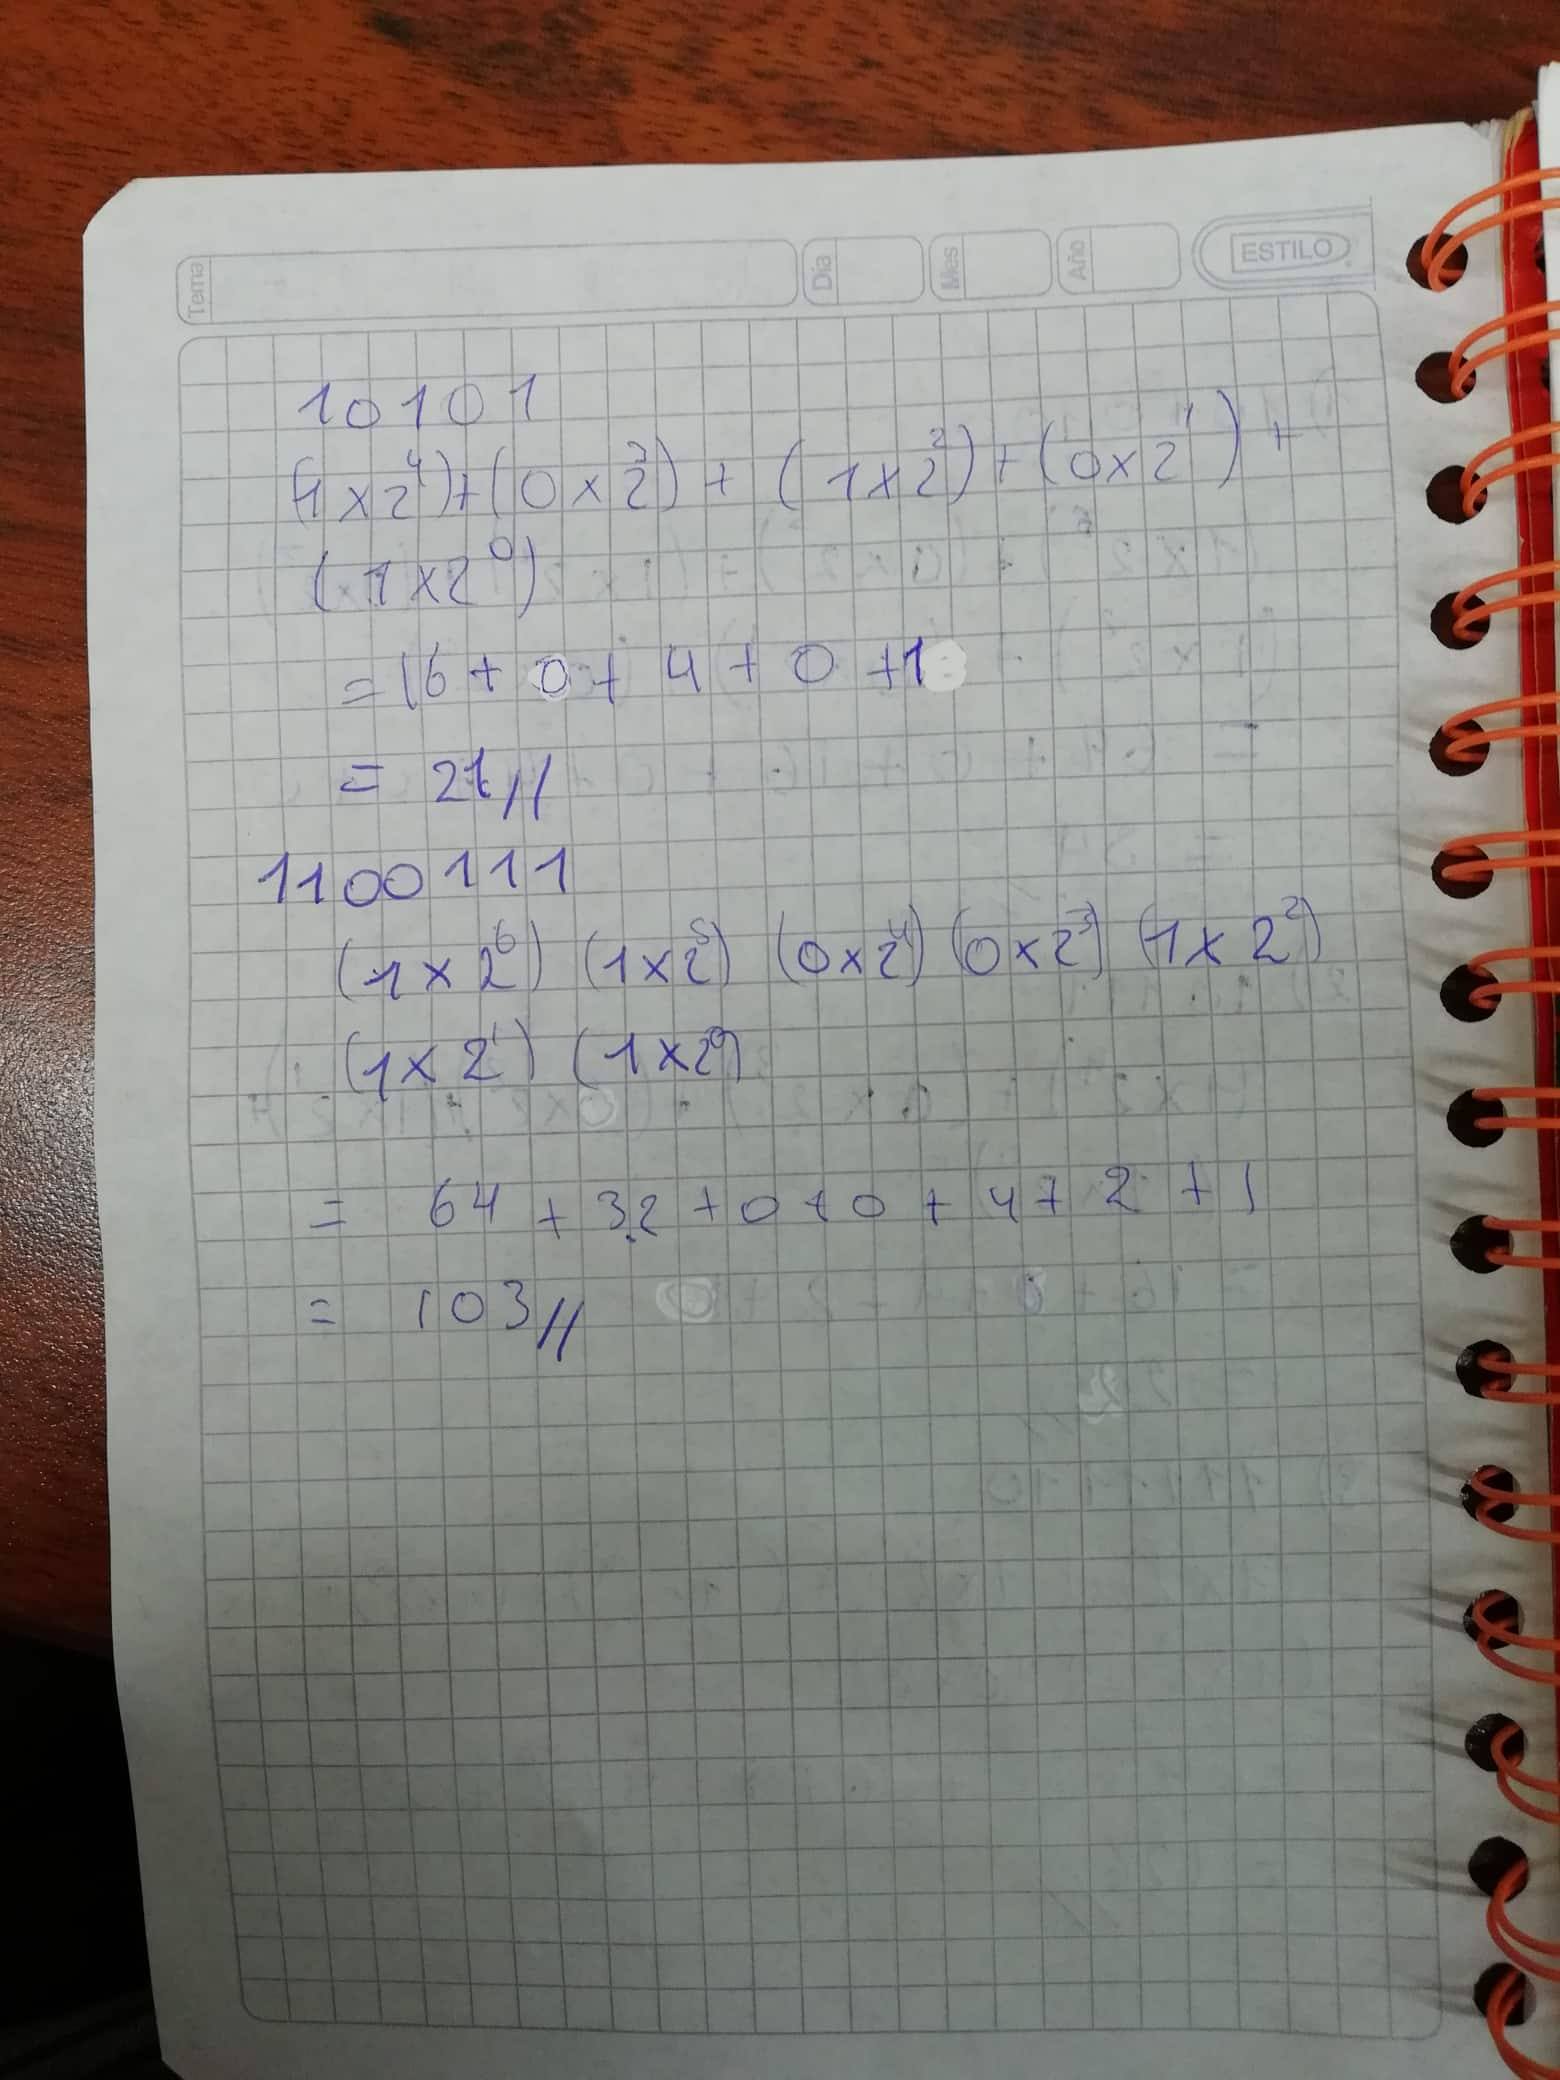 Tema Día Mes Año ESTILO
10101
(1x2⁴)+(0x2³)+(1x2²)+(0x2¹)+
(1x2⁰)
=16+0+4+0+1
=21//
1100111
(1x2⁶) (1x2⁵) (0x2⁴) (0x2³) (1x2²)
(1x2¹) (1x2⁰)
= 64+32+0+0+4+2+1
= 103//